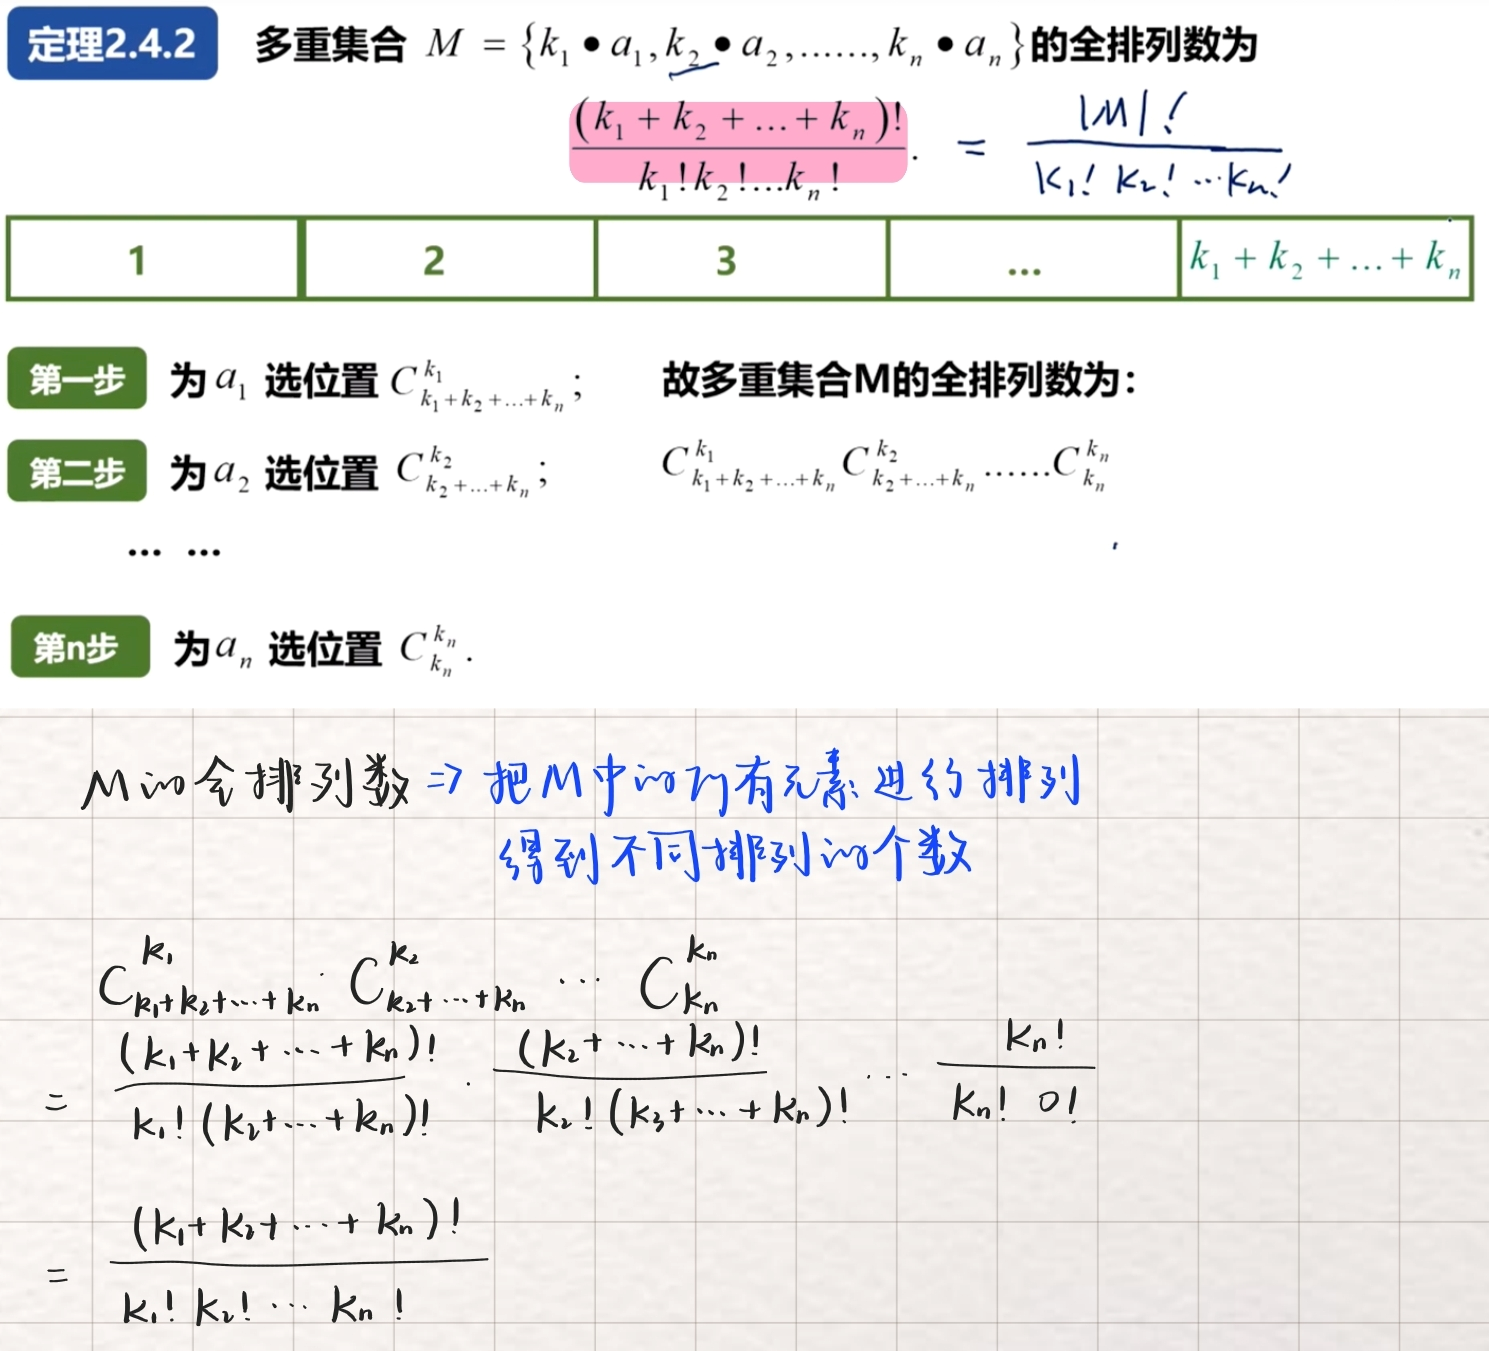 定理2.4.2 多重集合 M = {k₁ • a₁, k₂ • a₂, ……, kₙ • aₙ}的全排列数为
(k₁ + k₂ + … + kₙ)! / k₁!k₂!…kₙ! . = |M|! / k₁! k₂! … kₙ!
1 2 3 … k₁ + k₂ + … + kₙ
第一步 为 a₁ 选位置 C_{k₁+k₂+…+kₙ}^{k₁} ; 故多重集合M的全排列数为：
第二步 为 a₂ 选位置 C_{k₂+…+kₙ}^{k₂} ; C_{k₁+k₂+…+kₙ}^{k₁} C_{k₂+…+kₙ}^{k₂} …… C_{kₙ}^{kₙ}
… …
第n步 为 aₙ 选位置 C_{kₙ}^{kₙ} .
M的全排列数 => 把M中的所有元素进行排列
得到不同排列的个数
C_{k₁+k₂+…+kₙ}^{k₁} · C_{k₂+…+kₙ}^{k₂} … C_{kₙ}^{kₙ}
= (k₁+k₂+…+kₙ)! / k₁!(k₂+…+kₙ)! · (k₂+…+kₙ)! / k₂!(k₃+…+kₙ)! … kₙ! / kₙ! 0!
= (k₁+k₂+…+kₙ)! / k₁! k₂! … kₙ!